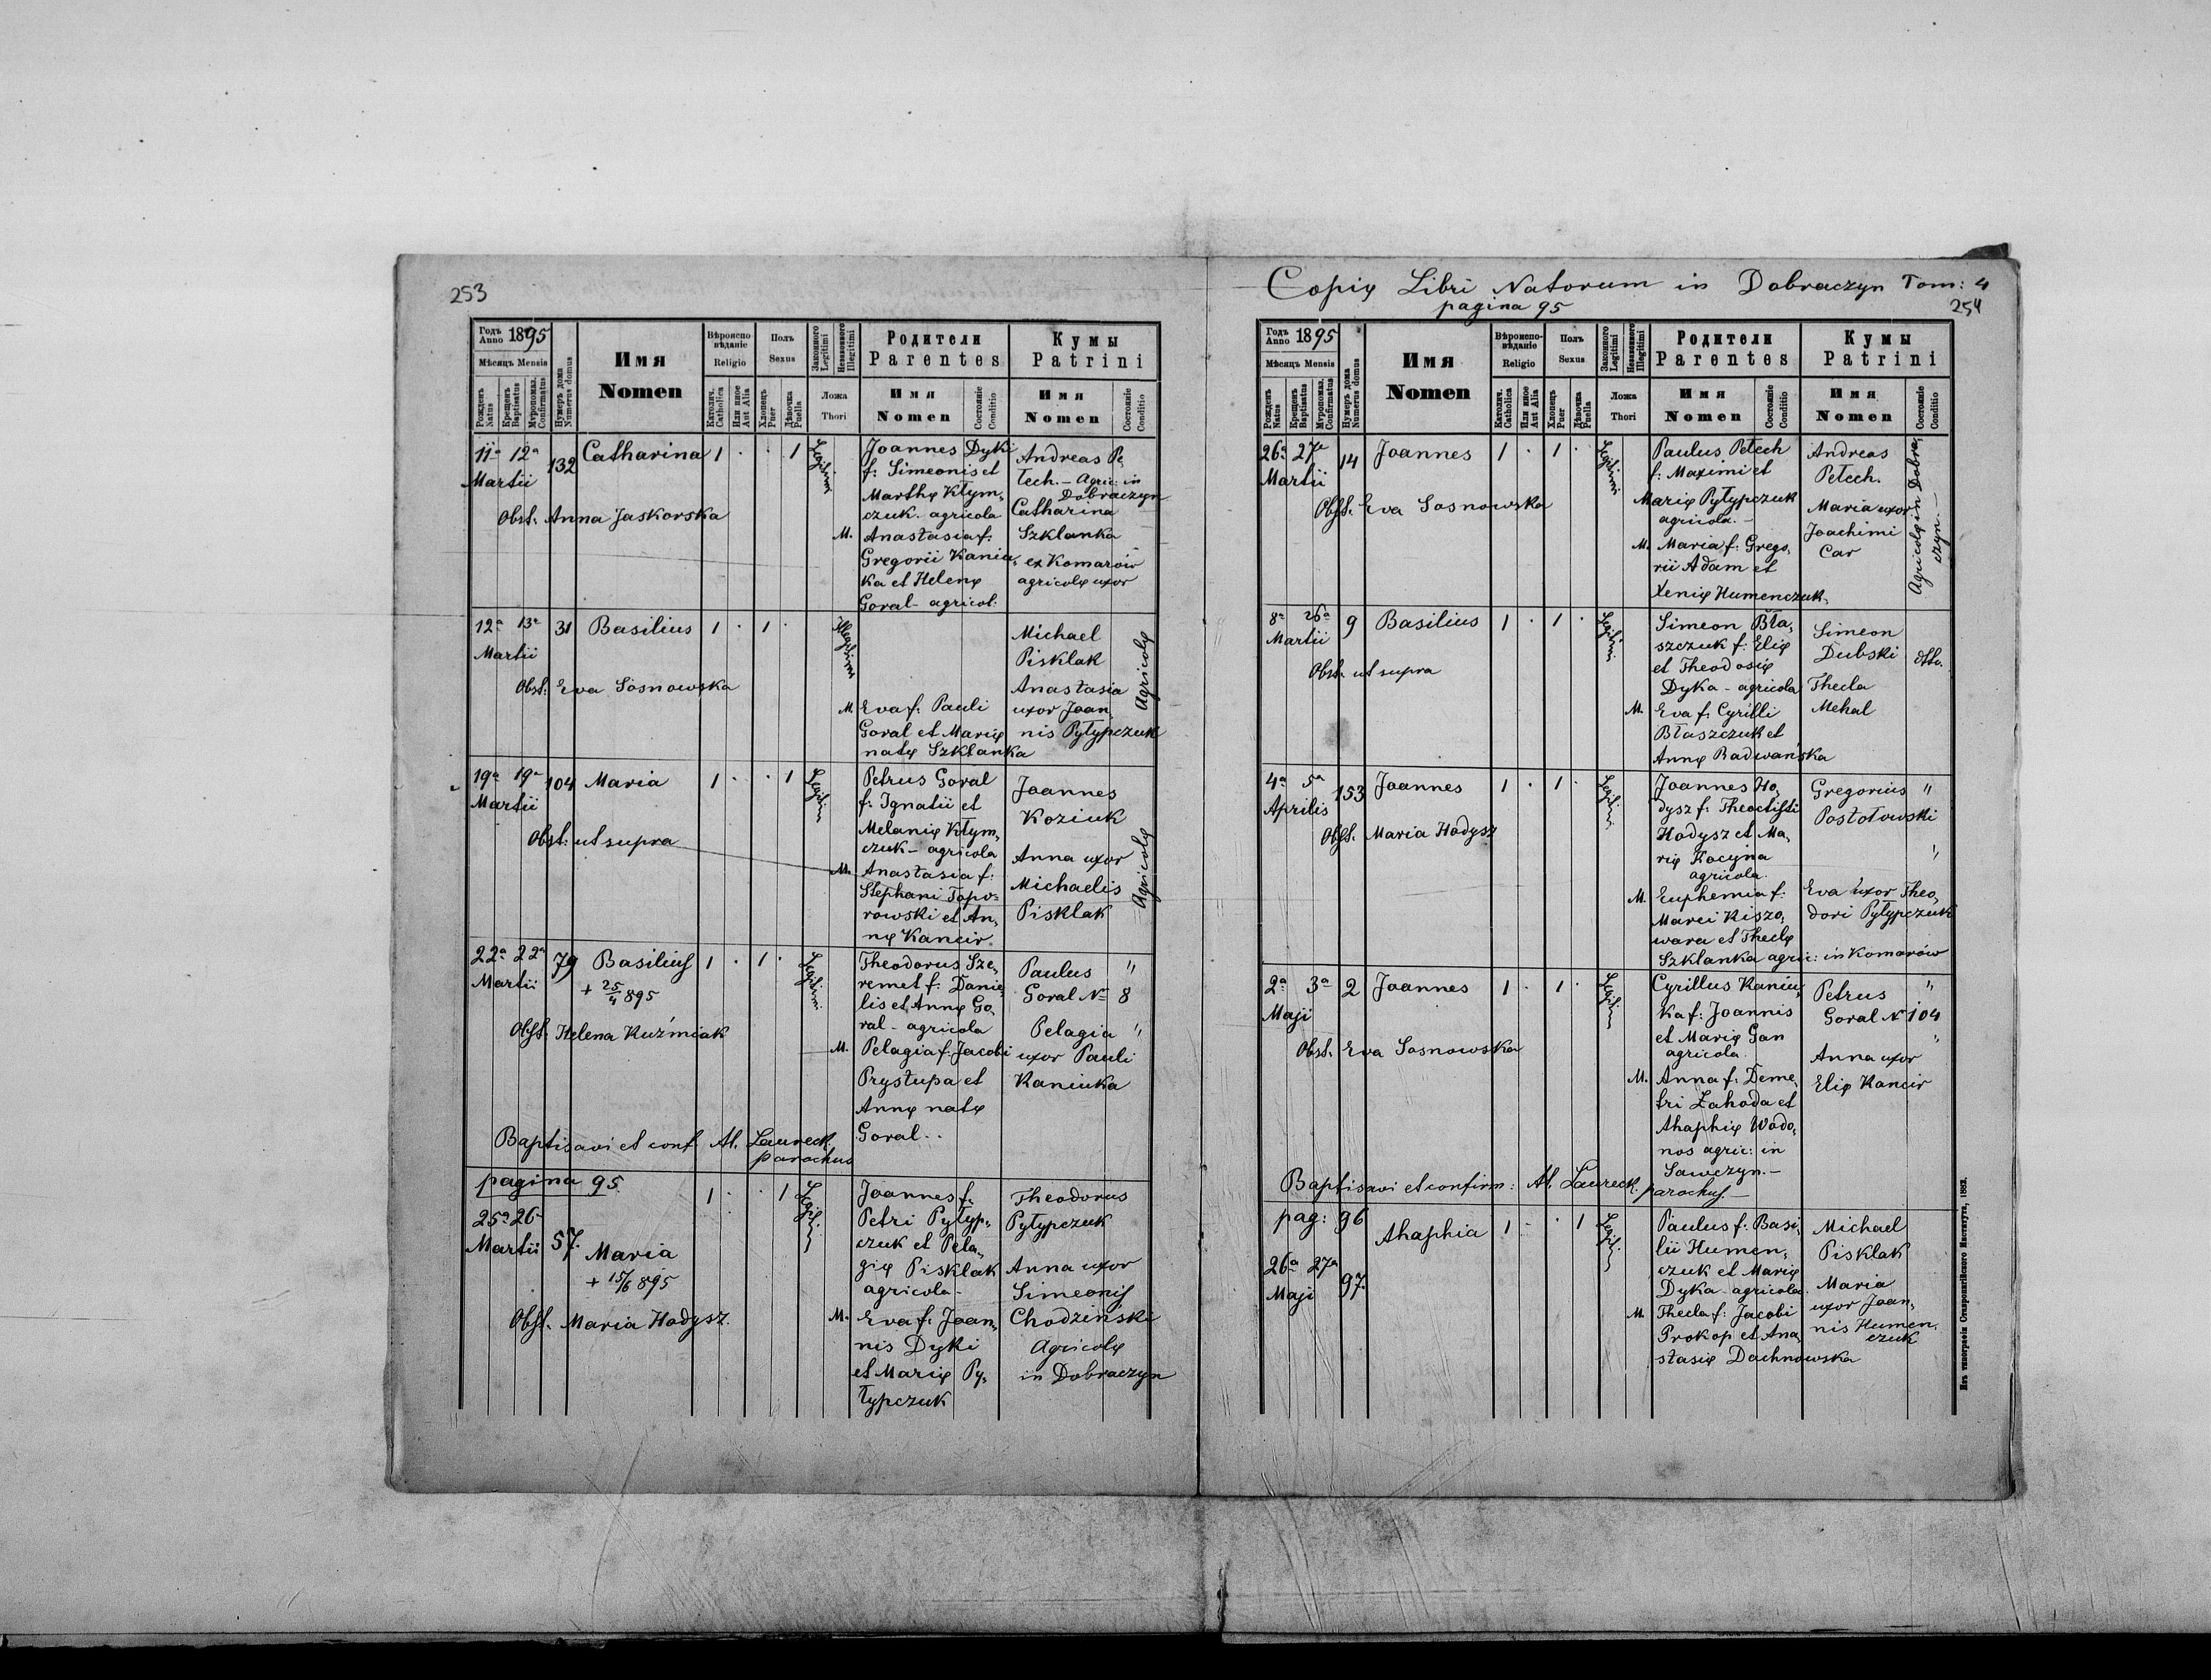 253
Годъ Anno 1895
Мѣсяцъ Mensis
Рожденъ Natus
Крещенъ Baptisatus
Мѵропомаз. Confirmatus
Нумеръ дома Numerus domus
Имя
Nomen
Вѣроисповѣданіе
Religio
Католич. Catholica
Или иное Aut Alia
Полъ
Sexus
Хлопецъ Puer
Дѣвочка Puella
Законного Legitimi
Незаконного Illegitimi
Ложа
Thori
Родители
Parentes
Имя
Nomen
Состояніе Conditio
Кумы
Patrini
Имя
Nomen
Состояніе Conditio
11a 12a
Martii
132
Catharina 1 . . 1
Legitimi
Obst. Anna Jaskorska
Joannes Dyki
f: Simeonis et
Marthę Kłym,
czuk. agricola
M. Anastasia f:
Gregorii Kaniu,
ka et Helenę
Goral - agricol:
Andreas Pe,
tech. - Agric: in
Dobraczyn
Catharina
Szklanka
ex Komarów
agricolę uxor
12a 13a
Martii
31
Basilius 1 . 1 .
Illegitimi
Obst: Eva Sosnowska
M. Eva f: Pauli
Goral et Marię
natę Szklanka
Michael
Pisklak
Anastasia
uxor Joan,
nis Pyłypczuk
Agricolę
19a 19a
Martii
104
Maria 1 . . 1
Legitim
Obst: ut supra
Petrus Goral
f: Ignatii et
Melanię Kłym,
czuk - agricola
M. Anastasia f:
Stephani Topo-
rowski et An,
nę Kancir.
Joannes
Koziuk
Anna uxor
Michaelis
Pisklak
Agricolę
22a 22a
Martii
79
Basilius 1 . 1 .
+ 25/4 895
Legitimi
Obst. Helena Kuźmiak
Theodorus Sze,
remet f: Danie,
lis et Annę Go,
ral - agricola
M. Pelagia f: Jacobi
Prystupa et
Annę natę
Goral..
Paulus "
Goral No 8
Pelagia "
uxor Pauli
Kaniuka
Baptisavi et conf. Al. Laureck.
parochus
pagina 95.
25a 26a
Martii
57.
Maria 1 . . 1
+ 15/6 895
Obst. Maria Hodysz.
Joannes f.
Petri Pyłyp,
czuk et Pela,
gię Pisklak
agricola -
M. Eva f: Joan,
nis Dyki
et Marię Py,
łypczuk
Theodorus
Pyłypczuk
Anna uxor
Simeonis
Chodziński
Agricolę
in Dobraczyn
Copię Libri Natorum in Dobraczyn Tom: 4
pagina 95
254
Годъ Anno 1895
Мѣсяцъ Mensis
Рожденъ Natus
Крещенъ Baptisatus
Мѵропомаз. Confirmatus
Нумеръ дома Numerus domus
Имя
Nomen
Вѣроисповѣданіе
Religio
Католич. Catholica
Или иное Aut Alia
Полъ
Sexus
Хлопецъ Puer
Дѣвочка Puella
Законного Legitimi
Незаконного Illegitimi
Ложа
Thori
Родители
Parentes
Имя
Nomen
Состояніе Conditio
Кумы
Patrini
Имя
Nomen
Состояніе Conditio
26a 27a
Martii
14
Joannes 1 . 1 .
Legitimi
Obst. Eva Sosnowska
Paulus Petech
f: Maximi et
Marię Pyłypczuk
agricola. -
M. Maria f: Grego,
rii Adam et
Xenię Humenczuk.
Andreas
Petech.
Maria uxor
Joachimi
Car
Agricolę in Dobra,
czyn. -
8a 26a
Martii
9
Basilius 1 . 1 .
Legitimi
Obst. ut supra
Simeon Bła,
szczuk f: Elię
et Theodosię
Dyka - agricola
M. Eva f: Cyrilli
Błaszczuk et
Annę Radwańska
Simeon
Dubski
Thecla
Mehal
dtto.
4a 5a
Aprilis
153
Joannes 1 . 1 .
Legitimi
Obst. Maria Hodysz
Joannes Ho,
dysz f: Theoctisti
Hodysz et Ma,
rię Kocyna
agricola.
M. Euphemia f:
Marci Kiszo,
wara et Theclę
Szklanka agric: in Komarów
Gregorius "
Postołowski
"
Eva uxor Theo,
dori Pyłypczuk
2a 3a
Maji
2
Joannes 1 . 1 .
Legitim
Obst. Eva Sosnowska
Cyrillus Kaniu,
ka f: Joannis
et Marię Gan
agricola.
M. Anna f: Deme,
tri Zahoda et
Ahaphię Wodo,
nos agric: in
Sawczyn. -
Petrus "
Goral No 104
"
Anna uxor
Elię Kancir
Baptisavi et confirm: Al. Laureck. parochus. -
pag: 96
26a 27a
Maji
97.
Ahaphia 1 - . 1
Paulus f: Basi,
lii Humen,
czuk et Marię
Dyka - agricola.
M. Thecla f: Jacobi
Prokop et Ana,
stasię Dachnowska
Michael
Pisklak
Maria
uxor Joan,
nis Humen,
czuk
Изъ типографіи Ставропигійского Института, 1882.